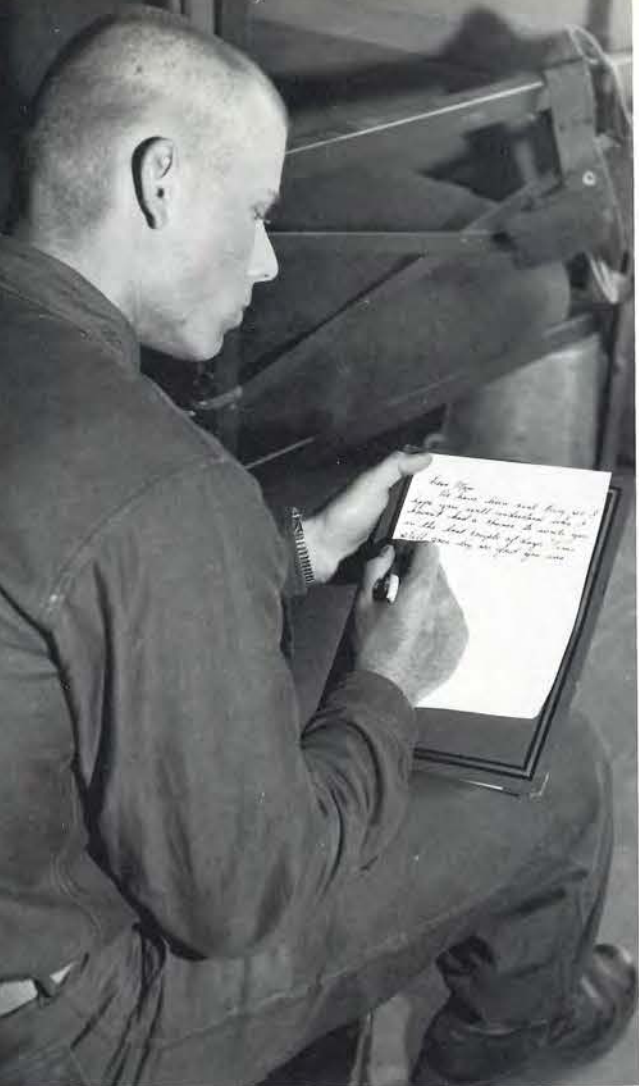 Dear Mom
We have been real busy, so I
hope you will understand why I
haven't had a chance to write you
in the last couple of days. I'm
still